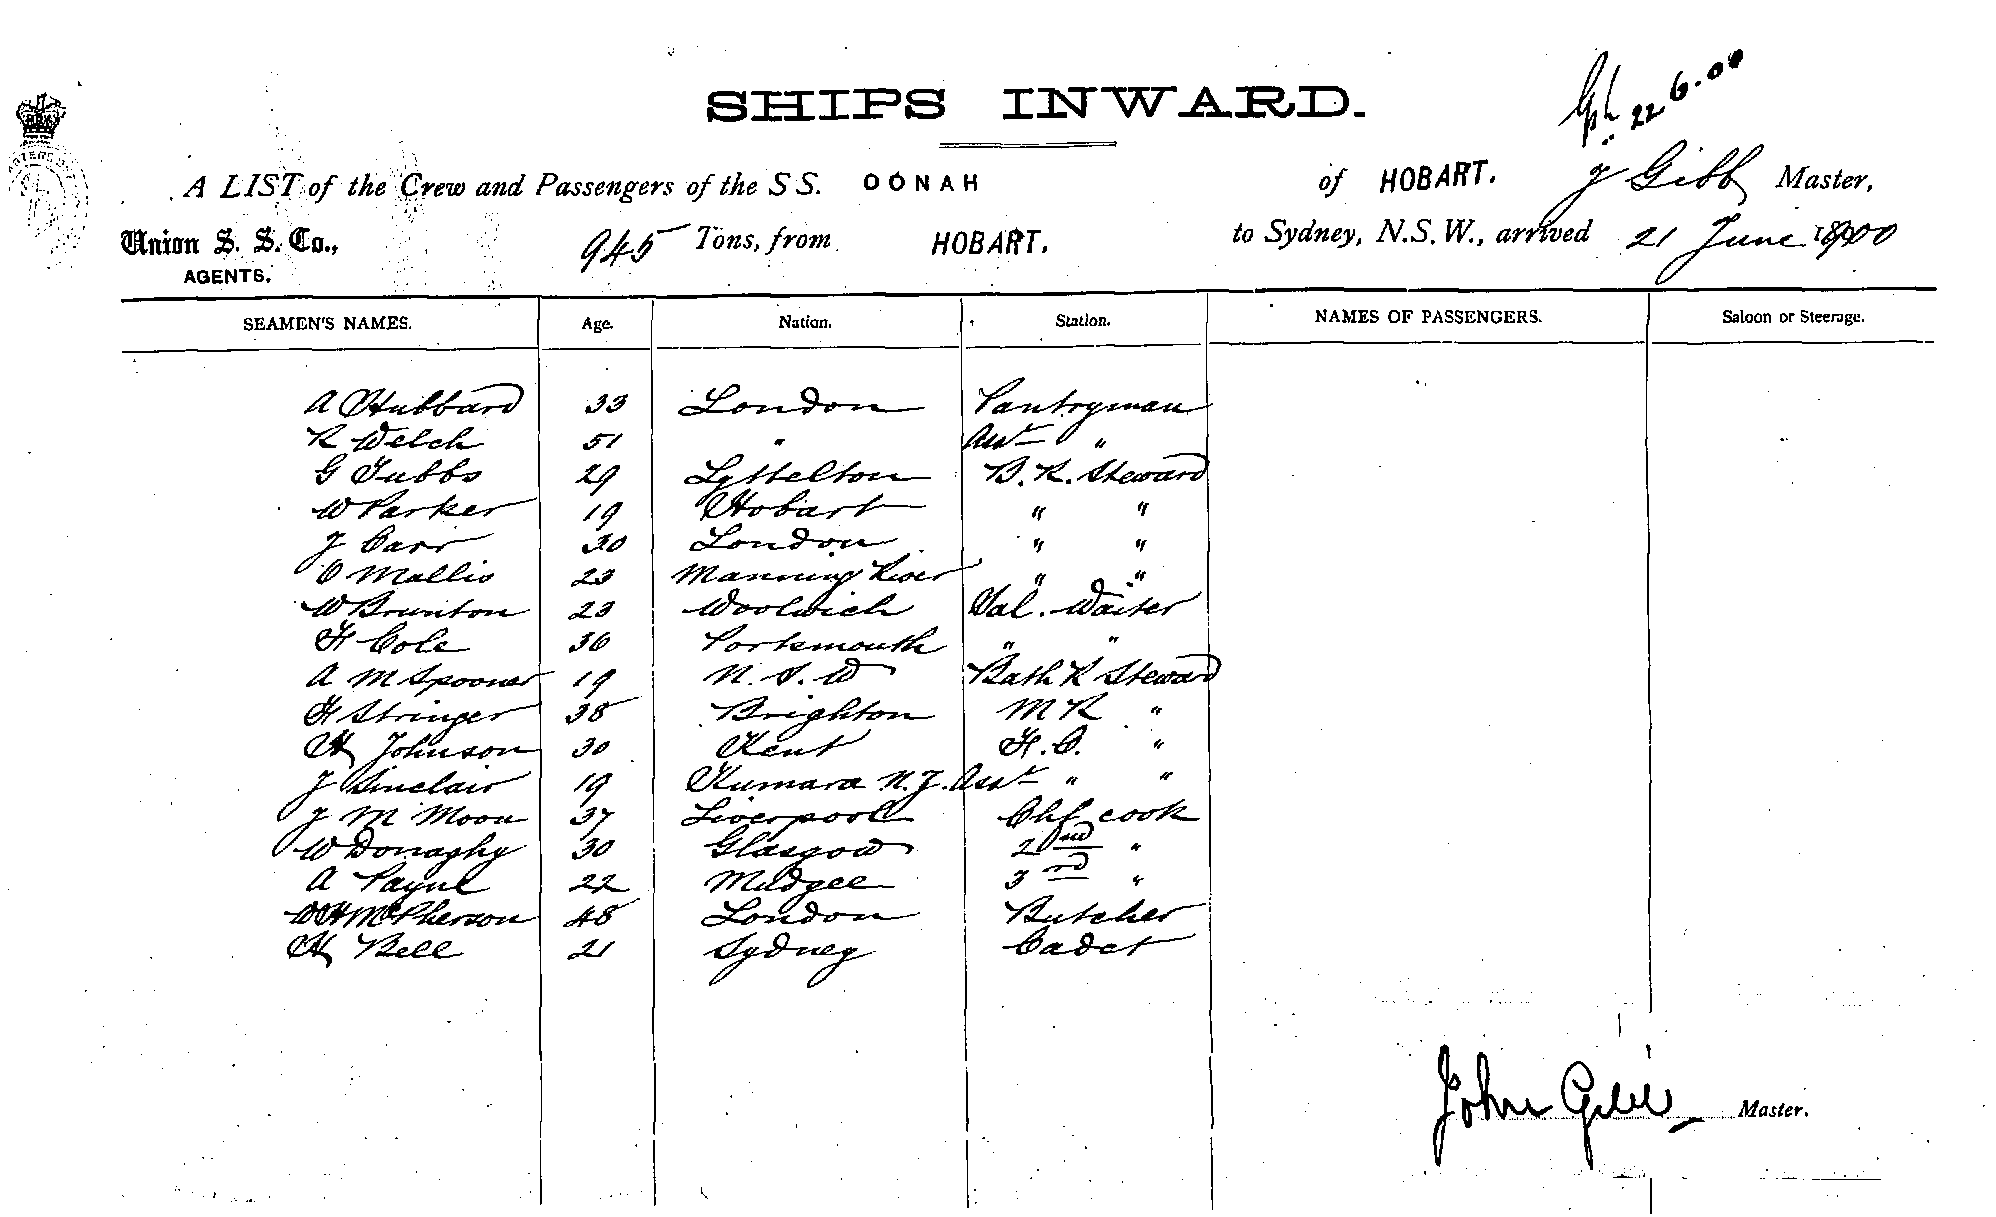 SHIPS INWARD.
22.6.00
A LIST of the Crew and Passengers of the S S. OONAH of HOBART. J Gibb Master,
Union S. S. Co., AGENTS. 945 Tons, from HOBART. to Sydney, N.S.W., arrived 21 June 1900
SEAMEN'S NAMES. Age. Nation. Station. NAMES OF PASSENGERS. Saloon or Steerage.
A Hubbard 33 London Pantryman
R Welch 51 " Asst "
G Tubbs 29 Lyttelton B. R. Steward
W Parker 19 Hobart " "
J Carr 30 London " "
C Mallis 23 Manning River " "
W Brunton 23 Woolwich Sal. Waiter
F Cole 36 Portsmouth " "
A M Spooner 19 N. S. W Bath R Steward
F Stringer 38 Brighton M R "
H Johnson 30 Kent F. C. "
J Sinclair 19 Kumara N.Z. Asst " "
J M Moon 37 Liverpool Chf cook
W Donaghy 30 Glasgow 2nd "
A Payne 22 Mudgee 3rd "
W H McPherson 48 London Butcher
H Bell 21 Sydney Cadet
John Gibb Master.